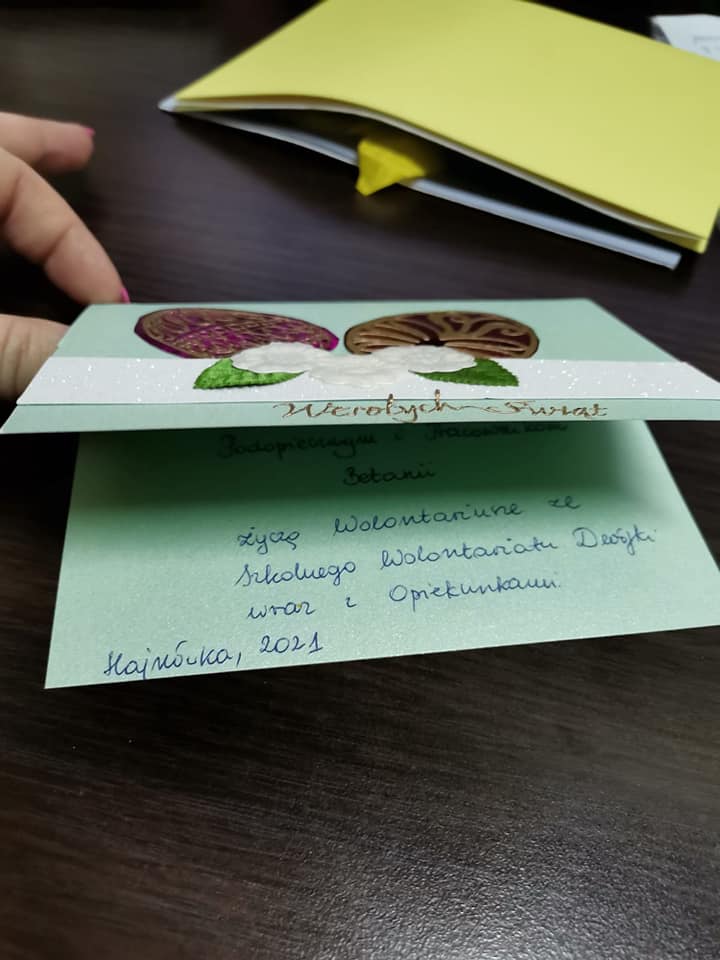 Wesołych Świąt
Podopiecznym i Pracownikom
Betanii
życzą Wolontariusze ze
Szkolnego Wolontariatu Dwójki
wraz z Opiekunkami.
Hajnówka, 2021